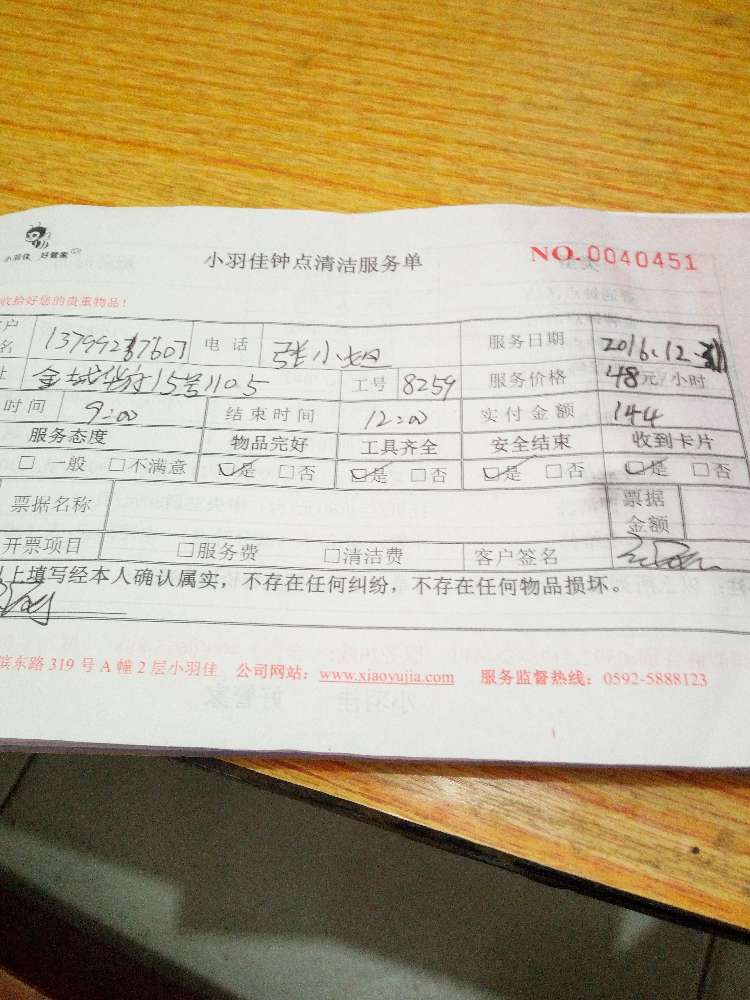 小羽佳 好管家
小羽佳钟点清洁服务单 NO.0040451
收拾好您的贵重物品！
户名 电话 张小姐 服务日期 2016.12.
址 15号1105 工号 8259 服务价格 48元/小时
时间 9:00 结束时间 12:00 实付金额 144
服务态度 物品完好 工具齐全 安全结束 收到卡片
□一般 □不满意 □是 □否 □是 □否 □是 □否 □是 □否
票据名称 票据金额
开票项目 □服务费 □清洁费 客户签名
上填写经本人确认属实，不存在任何纠纷，不存在任何物品损坏。
滨东路 319 号 A 幢 2 层小羽佳 公司网站：www.xiaoyujia.com 服务监督热线：0592-5888123